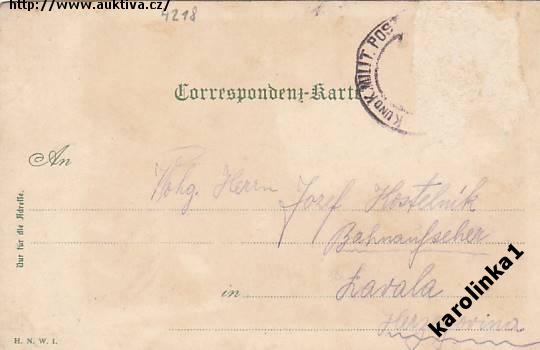 http://www.auktiva.cz/
4218
K UND K. MILIT. POS
Correspondenz-Karte
An
Wohg. Herrn Josef Hostelnik
Bahnaufseher
in Zavala
Herzegovina
Nur für die Adresse.
H. N. W. I.
karolinka1